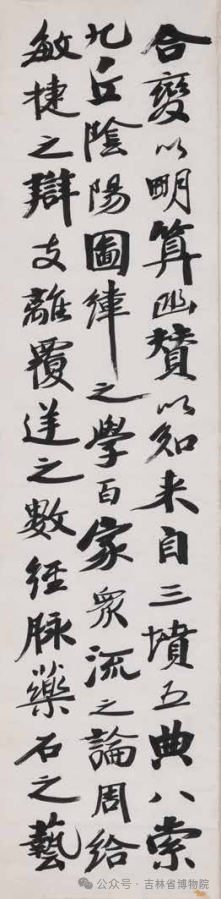 合變以明筭幽賛以知来自三墳五典八索
九丘陰陽圖緯之學百家衆流之論周給
敏捷之辯支離覆逆之數徑脉藥石之藝
公众号·吉林省博物院